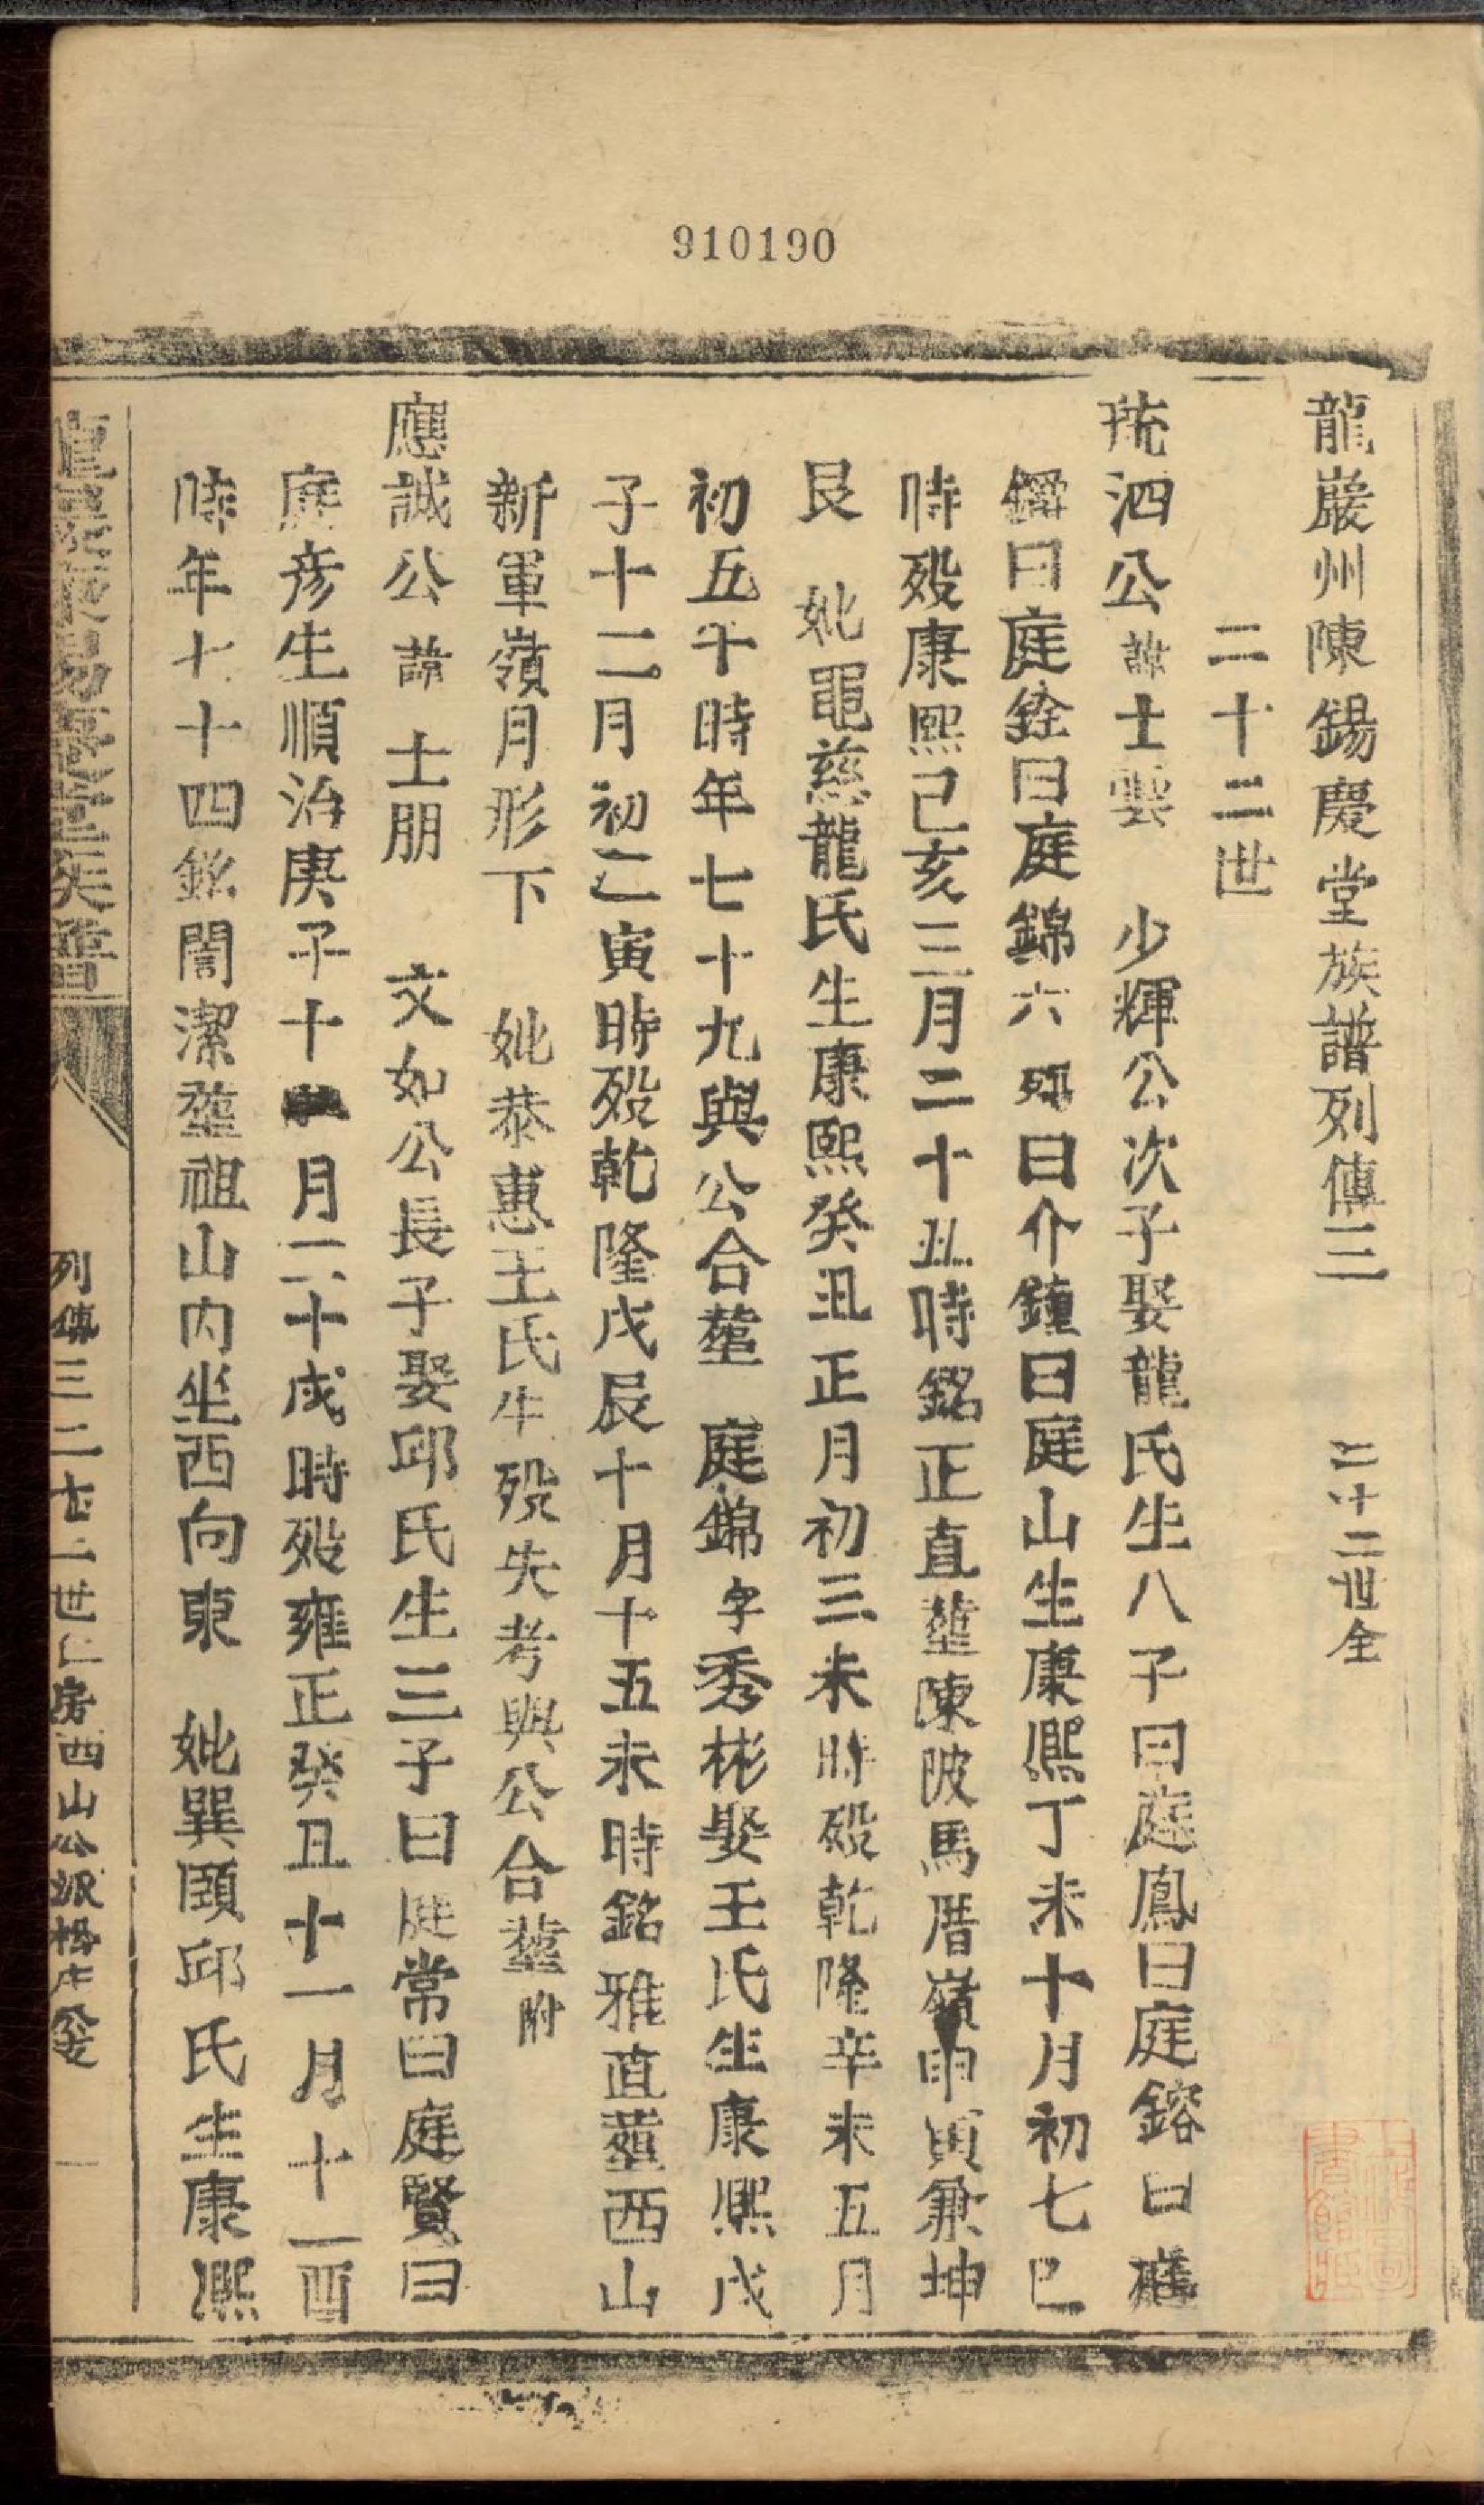 910190
龍巖州陳錫慶堂族譜列傳三 二十二世全
二十二世
毓泗公諱士雲 少輝公次子娶龍氏生八子曰庭鳳曰庭鎔曰庭
鐸曰庭銓曰庭錦六殀曰介鐘曰庭山生康熙丁未十月初七巳
時歿康熙己亥三月二十丑時銘正直塟陳陂馬厝嶺申寅兼坤
艮 妣黽慈龍氏生康熙癸丑正月初三未時歿乾隆辛未五月
初五午時年七十九與公合塟 庭錦字秀彬娶王氏生康熙戊
子十二月初二寅時歿乾隆戊辰十月十五未時銘雅直塟西山
新軍嶺月形下 妣恭惠王氏生歿失考與公合塟附
應誠公諱士朋 文如公長子娶邱氏生三子曰庭常曰庭賢曰
庭彥生順治庚子十月二十戌時歿雍正癸丑十一月十一酉
時年七十四銘誾潔塟祖山內坐西向東 妣巽頤邱氏生康熙
龍巖陳錫慶堂族譜 列傳三 二十二世仁房西山公派 一